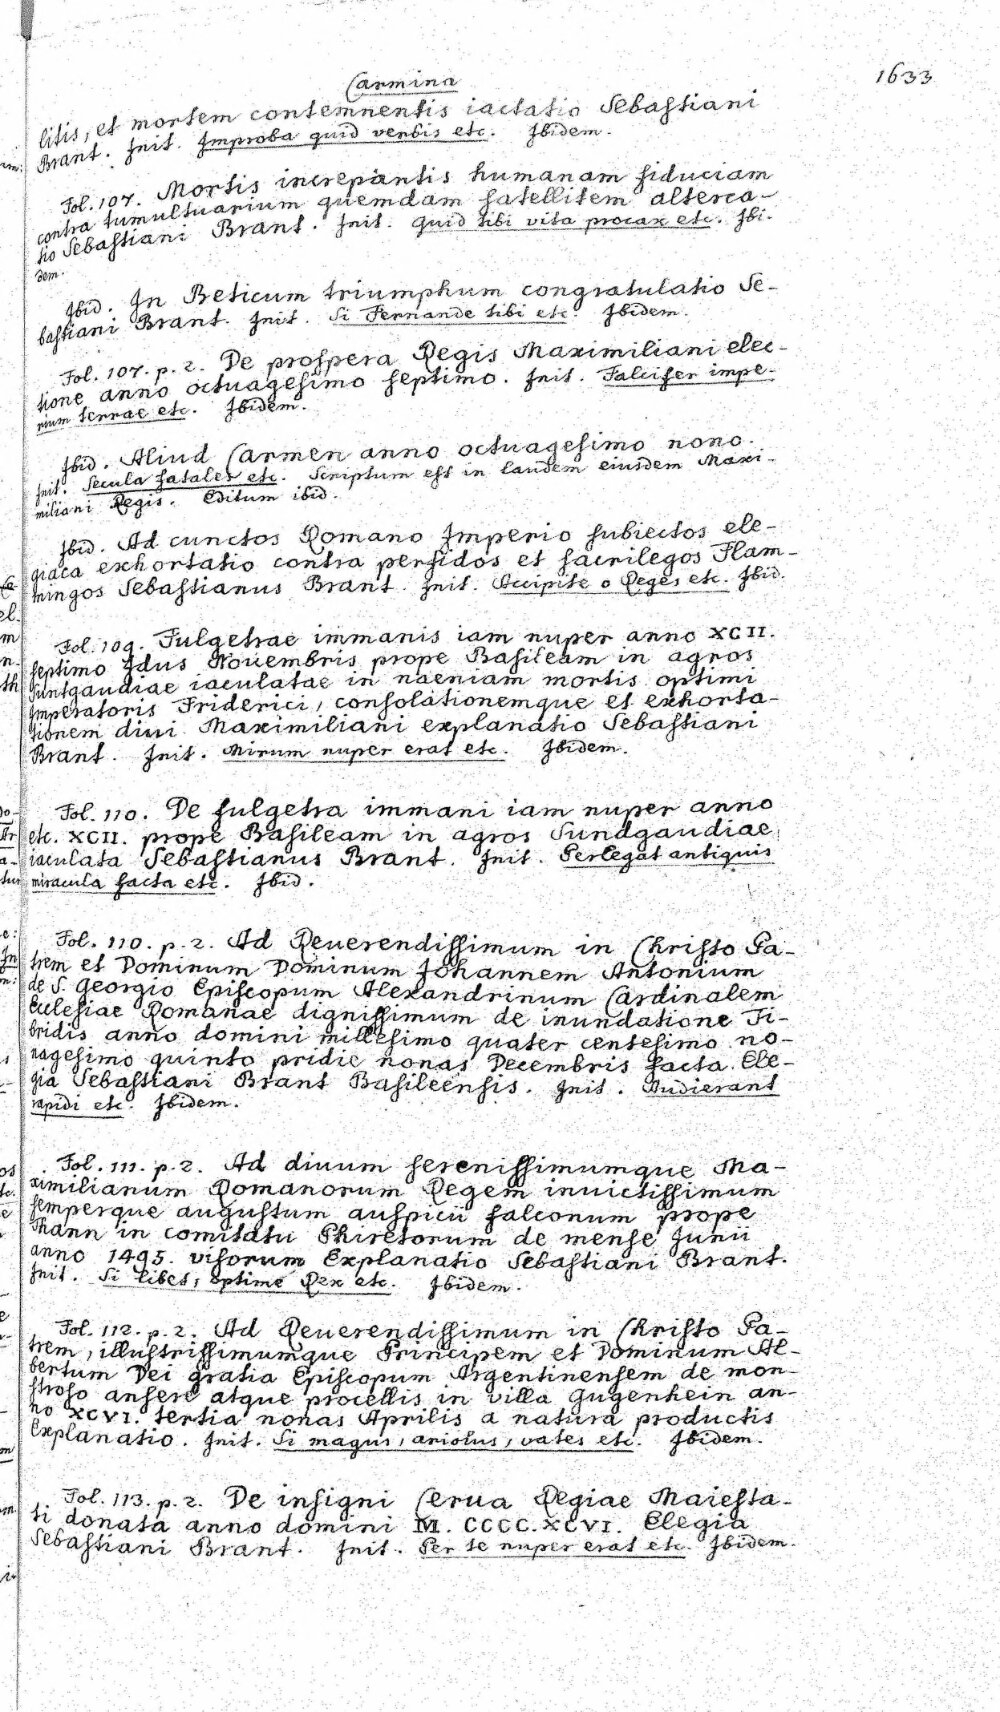 Carmina
1633
litis, et mortem contemnentis iactatio Sebastiani
Brant. Init. Improba quid verbis etc. Ibidem.
Fol. 107. Mortis increpantis humanam fiduciam
contra tumultuarium quemdam satellitem alterca-
tio Sebastiani Brant. Init. Quid tibi vita procax etc. Ibi-
dem.
Ibid. In Beticum triumphum congratulatio Se-
bastiani Brant. Init. Si Fernande tibi etc. Ibidem.
Fol. 107. p. 2. De prospera Regis Maximiliani elec-
tione anno octuagesimo septimo. Init. Falcifer impe-
rium terrae etc. Ibidem.
Ibid. Aliud Carmen anno octuagesimo nono.
Init. Secula fatales etc. Scriptum est in laudem eiusdem Maxi-
miliani Regis. Editum ibid.
Ibid. Ad cunctos Romano Imperio subiectos ele-
giaca exhortatio contra perfidos et sacrilegos Flam-
mingos Sebastianus Brant. Init. Accipite o Reges etc. Ibid.
Fol. 109. Fulgetrae immanis iam nuper anno XCII.
septimo Idus Nouembris prope Basileam in agros
Suntgaudiae iaculatae in naeniam mortis optimi
Imperatoris Friderici, consolationemque et exhorta-
tionem diui Maximiliani explanatio Sebastiani
Brant. Init. Mirum nuper erat etc. Ibidem.
Fol. 110. De fulgetra immani iam nuper anno
etc. XCII. prope Basileam in agros Sundgaudiae
iaculata Sebastianus Brant. Init. Perlegat antiquis
miracula facta etc. Ibid.
Fol. 110. p. 2. Ad Reuerendissimum in Christo Pa-
trem et Dominum Dominum Johannem Antonium
de S. Georgio Episcopum Alexandrinum Cardinalem
Eclesiae Romanae dignissimum de inundatione Ti-
bridis anno domini millesimo quater centesimo no-
nagesimo quinto pridie nonas Decembris facta. Ele-
gia Sebastiani Brant Basileensis. Init. Audierant
rapidi etc. Ibidem.
Fol. 111. p. 2. Ad diuum serenissimumque Ma-
ximilianum Romanorum Regem inuictissimum
semperque augustum auspicii falconum prope
Thann in comitatu Phiretorum de mense Junii
anno 1495. visorum Explanatio Sebastiani Brant.
Init. Si libet, optime Rex etc. Ibidem.
Fol. 112. p. 2. Ad Reuerendissimum in Christo Pa-
trem, illustrissimumque Principem et Dominum Al-
bertum Dei gratia Episcopum Argentinensem de mon-
stroso ansere atque procellis in villa Gugenhein an-
no XCVI. tertia nonas Aprilis a natura productis
Explanatio. Init. Si magus, ariolus, vates etc. Ibidem.
Fol. 113. p. 2. De insigni Cerua Regiae Maiesta-
ti donata anno domini M. CCCC. XCVI. Elegia
Sebastiani Brant. Init. Per te nuper erat etc. Ibidem.